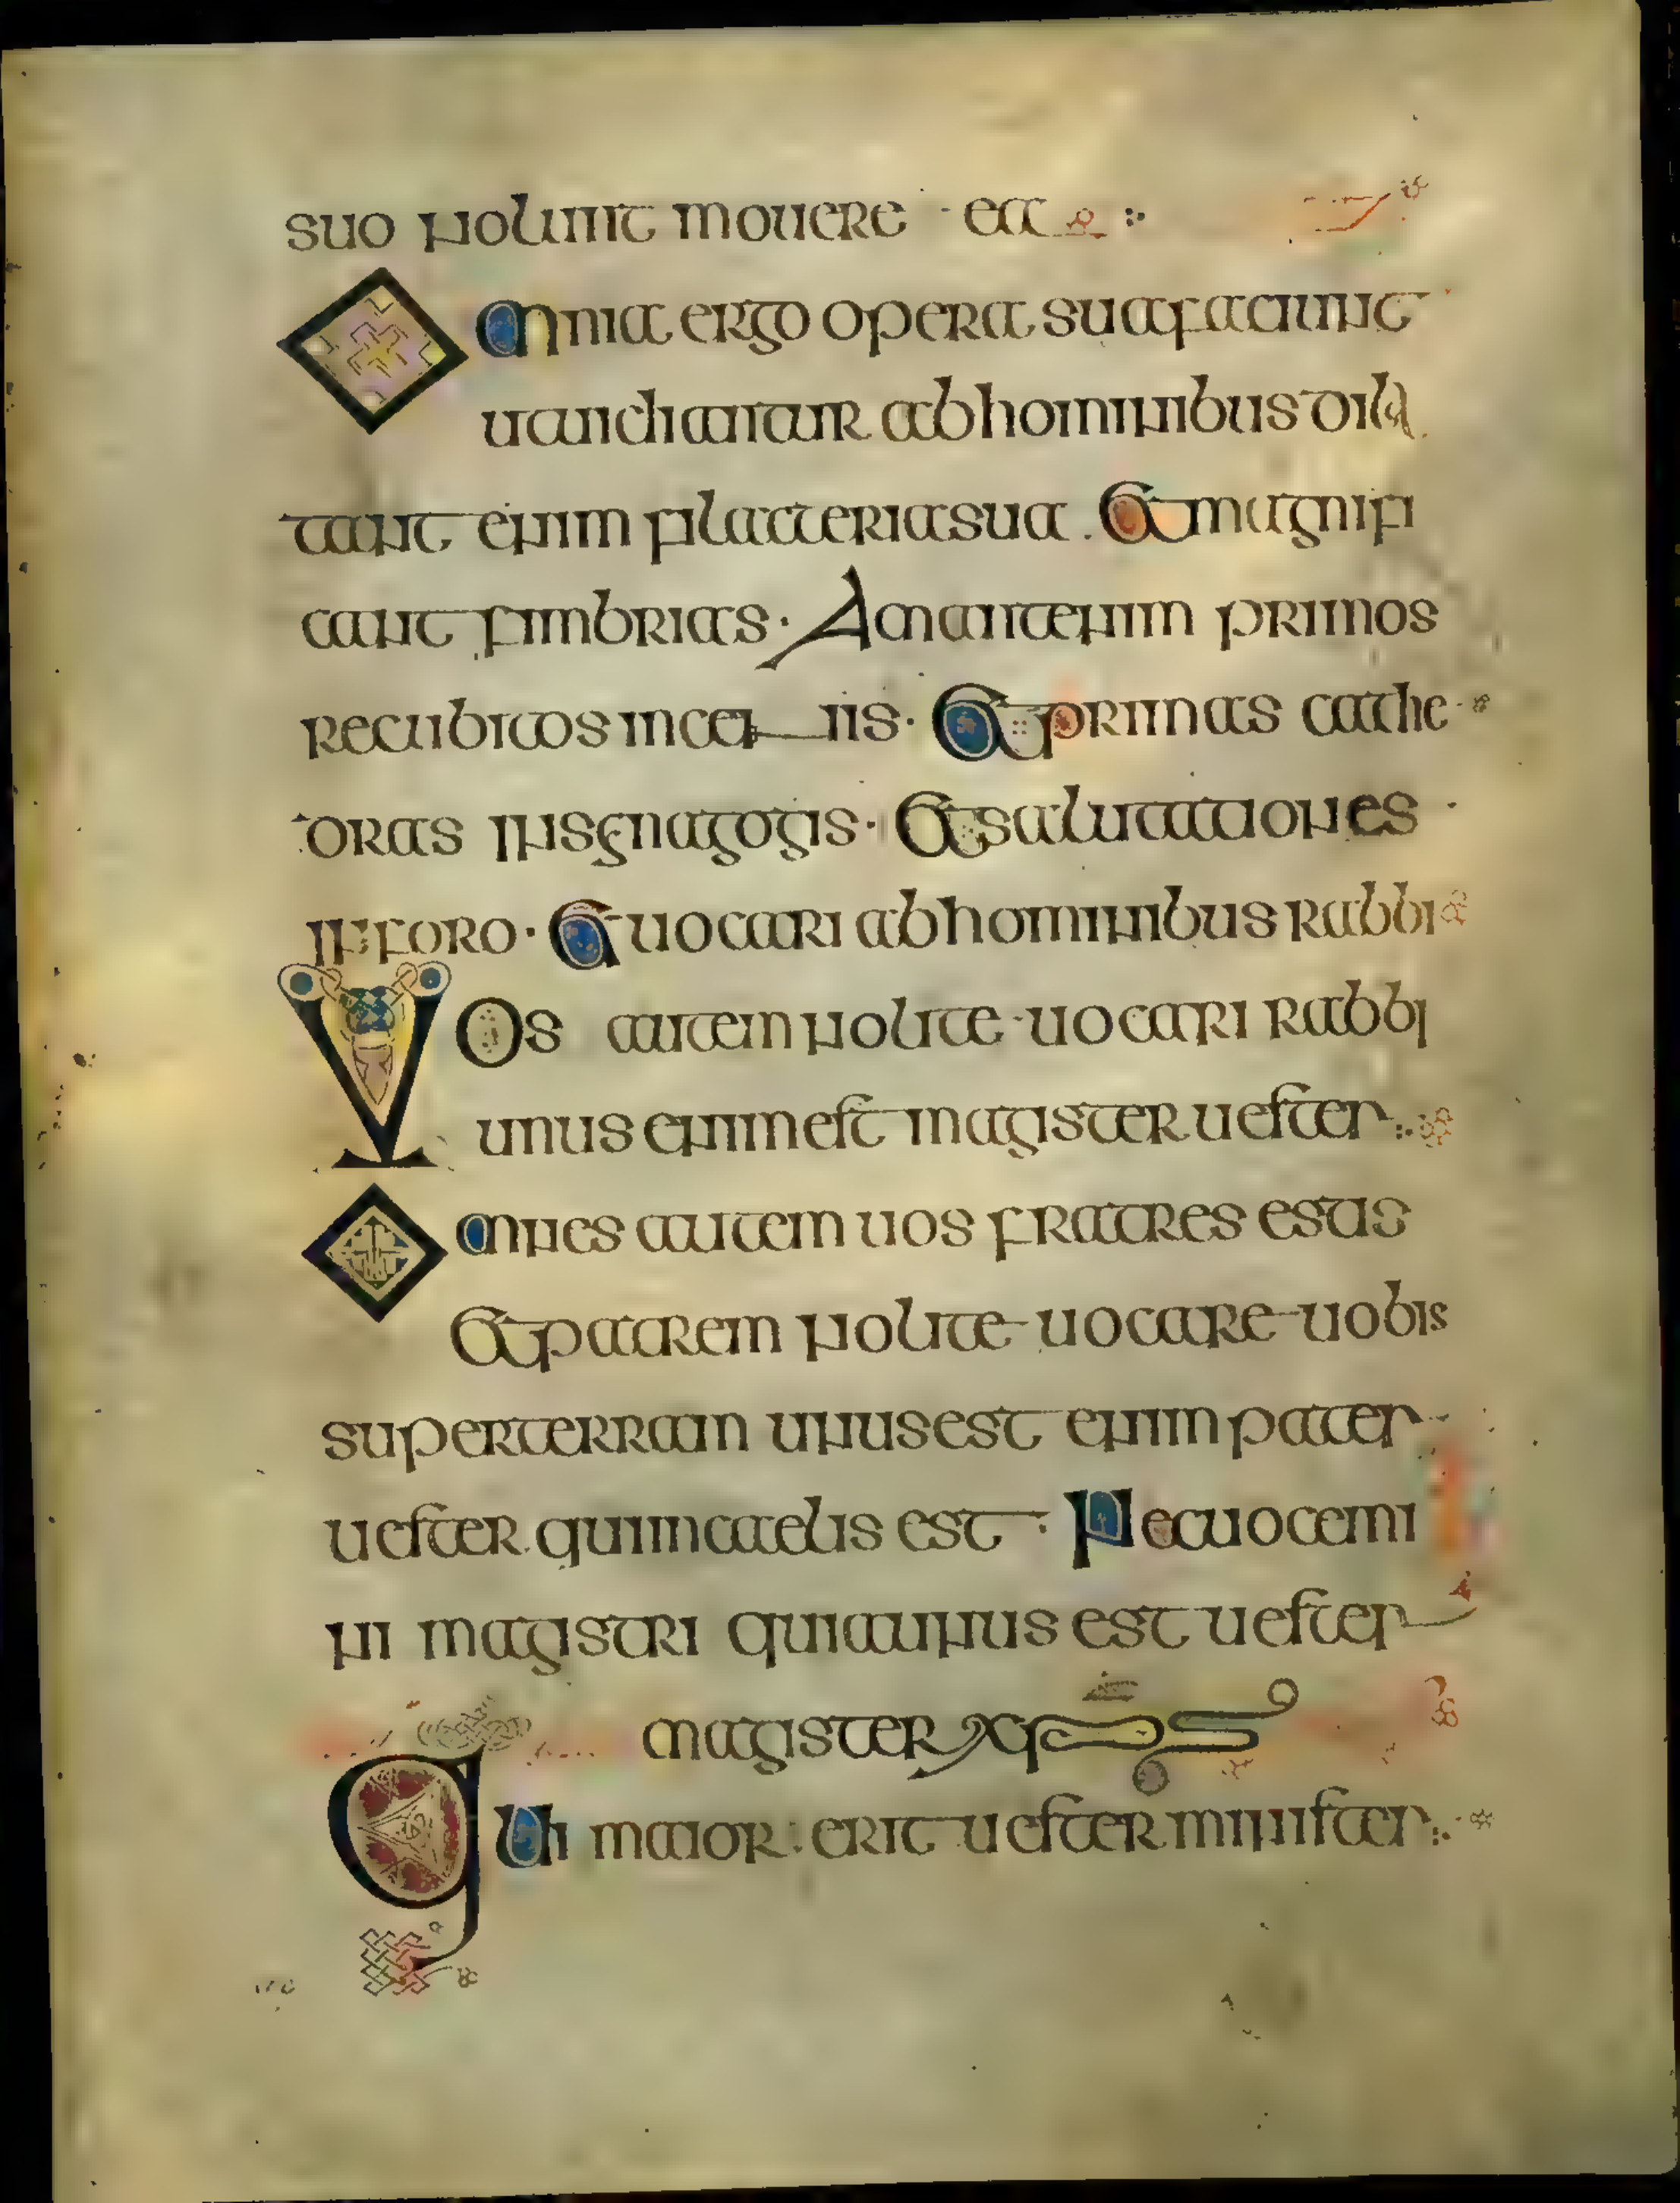 suo nolunt mouere ea
Omnia ergo opera sua faciunt
ut uideantur ab hominibus dila
tant enim filacteria sua . Et magnifi
cant fimbrias · Amant enim primos
recubitos in cenis · Et primas cathe
dras in synagogis · Et salutationes
in foro · Et uocari ab hominibus rabbi
Vos autem nolite uocari rabbi
unus enim est magister uester
Omnes autem uos fratres estis
Et patrem nolite uocare uobis
super terram unus est enim pater
uester qui in caelis est · Nec uocemi
ni magistri quia unus est uester
magister xp̄s
Qui maior · erit uester minister